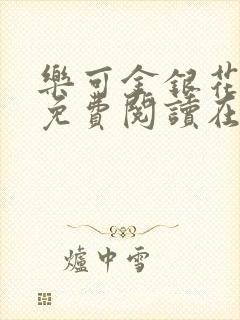 樂可金銀花
免費閱讀在
爐中雪